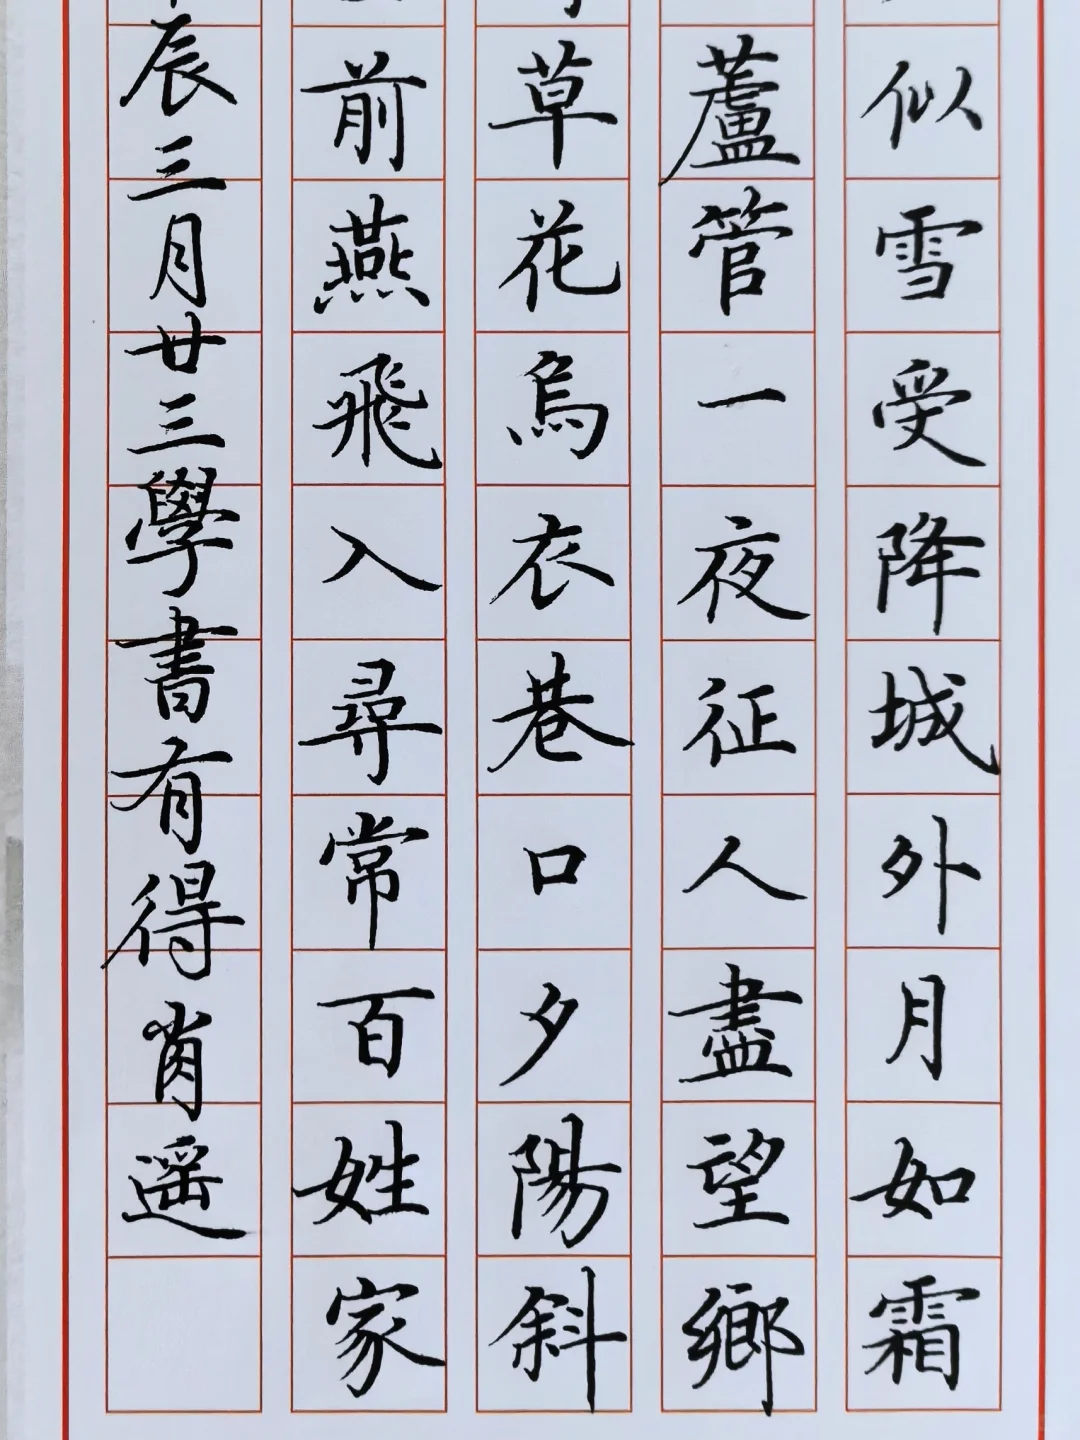 似雪受降城外月如霜
蘆管一夜征人盡望鄉
草花烏衣巷口夕陽斜
前燕飛入尋常百姓家
辰三月廿三學書有得肖遥